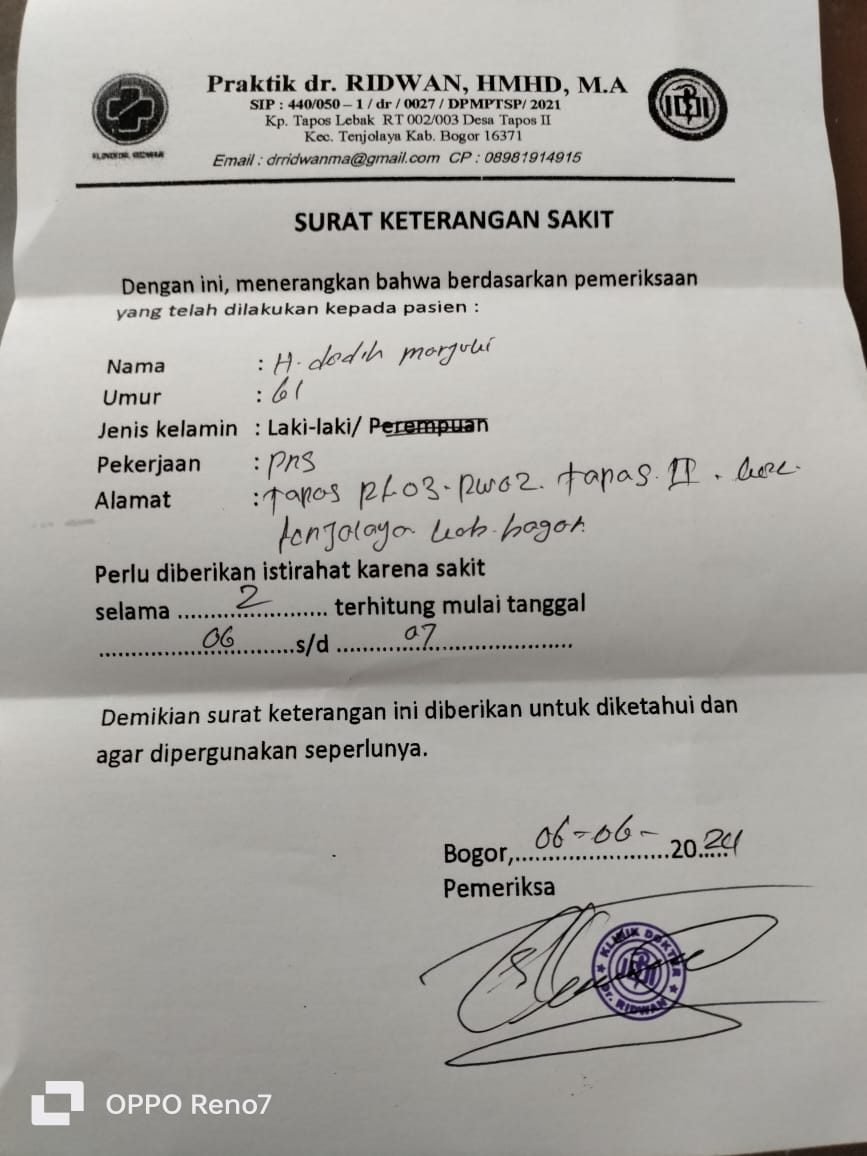 Praktik dr. RIDWAN, HMHD, M.A
SIP : 440/050 – 1 / dr / 0027 / DPMPTSP/ 2021
Kp. Tapos Lebak RT 002/003 Desa Tapos II
Kec. Tenjolaya Kab. Bogor 16371
Email : drridwanma@gmail.com CP : 08981914915
KLINIK DR. RIDWAN
IDI
SURAT KETERANGAN SAKIT
Dengan ini, menerangkan bahwa berdasarkan pemeriksaan
yang telah dilakukan kepada pasien :
Nama : H. dodih
Umur : 61
Jenis kelamin : Laki-laki/ Perempuan
Pekerjaan : pns
Alamat : Tapos Rt 03. Rw 02. tapas II. kec.
tenjolaya kab. bogor.
Perlu diberikan istirahat karena sakit
selama ......2...... terhitung mulai tanggal
......06......s/d ......07......
Demikian surat keterangan ini diberikan untuk diketahui dan
agar dipergunakan seperlunya.
Bogor,...06-06-...2024
Pemeriksa
KLINIK DOKTER
Dr. RIDWAN
OPPO Reno7